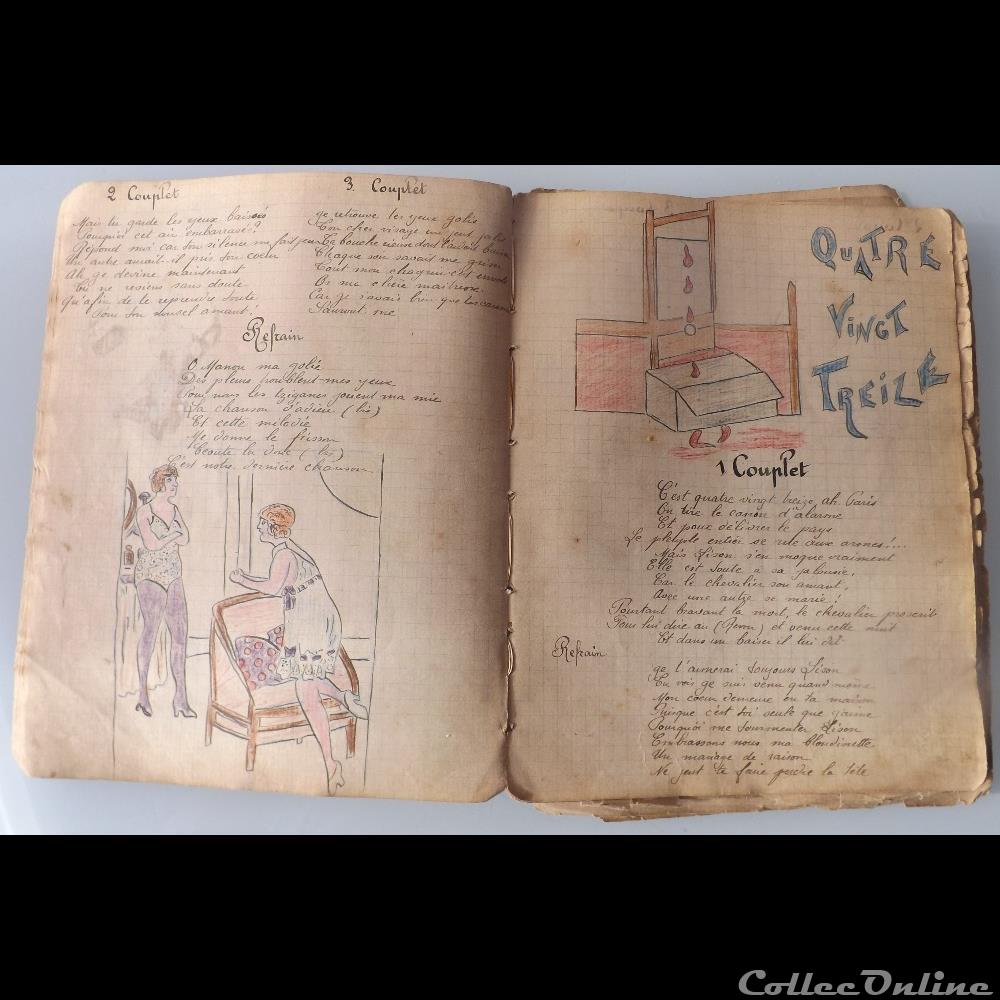 2 Couplet
Mais tu garde les yeux baissés
Pourquoi cet air embarrassé?
Répond moi car ton silence me fait peur
Un autre aurait-il pris ton coeur
Ah je devine maintenant
Tu ne reviens sans doute
Qu'afin de le reprendre toute
Pour ton nouvel amant!
3. Couplet
Je retrouve tes yeux jolis
Ton cher visage un peut
La bouche
Chaque son savait me griser
Tout mon chagrin c'est
Oh ma chère maitresse
Car je savais bien que tes
Sauront me
Refrain
O Manon ma jolie
Des pleurs troublent mes yeux
Pour nous les tziganes jouent ma mie
La chanson d'adieu (bis)
Et cette mélodie
Me donne le frisson
Ecoute la donc (bis)
C'est notre dernière chanson
QUATRE
VINGT
TREIZE
1 Couplet
C'est quatre vingt treize, ah Paris
On tire le canon d'alarme
Et pour délivrer le pays
Le peuple entier se rue aux armes!...
Mais Lison s'en moque vraiment
Elle est toute a sa jalousie,
Car le chevalier son amant,
Avec une autre se marie!
Pourtant bravant la mort, le chevalier proscrit
Pour lui dire au (Revoir) et venu cette nuit
Et dans un baiser il lui dit
Refrain
Je t'aimerai toujours Lison
Tu vois je suis venu quand même
Mon coeur demeure en ta maison
Puisque c'est toi seule que j'aime
Pourquoi me tourmenter Lison
Embrassons nous ma blondinette
Un mariage de raison
Ne peut te faire perdre la tête
CollecOnline